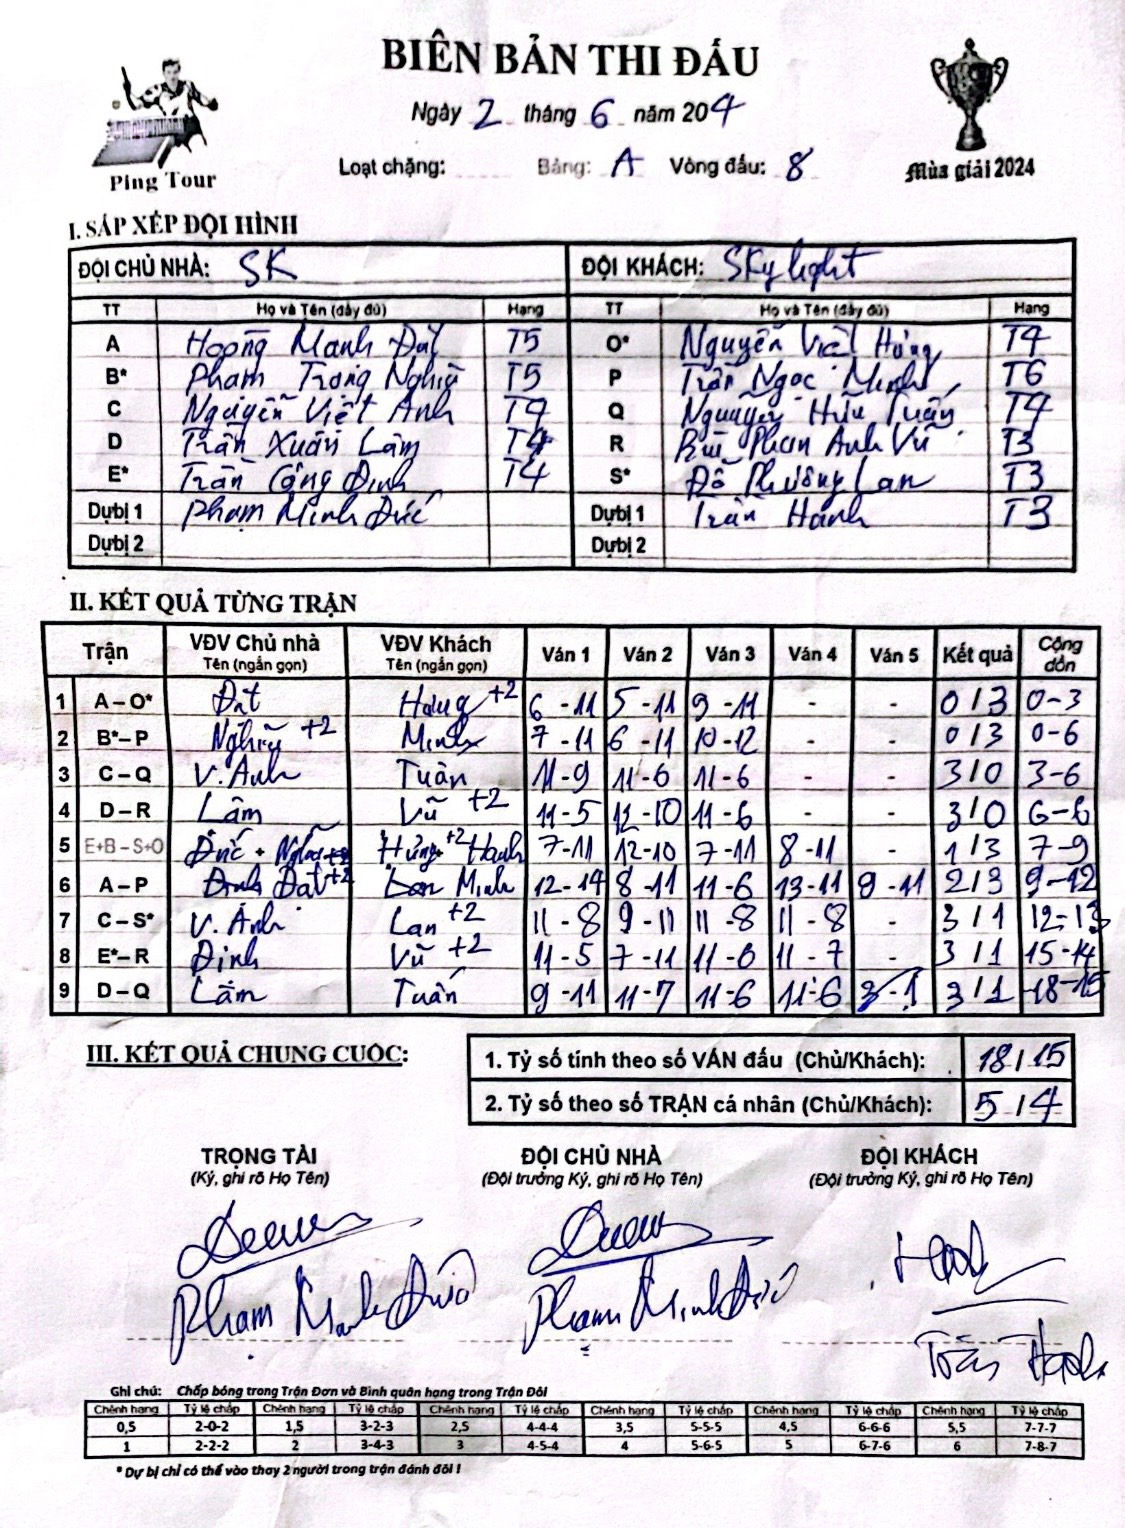 BIÊN BẢN THI ĐẤU
Ngày 2 tháng 6 năm 204
Loạt chặng: Bảng: A Vòng đấu: 8
Ping Tour
Mùa giải 2024
I. SẮP XẾP ĐỘI HÌNH
ĐỘI CHỦ NHÀ: SK ĐỘI KHÁCH: SKylight
TT Họ và Tên (đầy đủ) Hạng TT Họ và Tên (đầy đủ) Hạng
A Hoàng Mạnh Đạt T5 O* Nguyễn Việt Hưng T4
B* Phạm Trọng Nghĩa T5 P Trần Ngọc Minh T6
C Nguyễn Việt Anh T4 Q Nguyễn Hữu Tuấn T4
D Trần Xuân Lâm T4 R Bùi Phan Anh Vũ T3
E* Trần Công Định T4 S* Đỗ Phương Lan T3
Dự bị 1 Phạm Minh Đức Dự bị 1 Trần Hạnh T3
Dự bị 2 Dự bị 2
II. KẾT QUẢ TỪNG TRẬN
Trận VĐV Chủ nhà Tên (ngắn gọn) VĐV Khách Tên (ngắn gọn) Ván 1 Ván 2 Ván 3 Ván 4 Ván 5 Kết quả Cộng dồn
1 A – O* Đạt Hưng +2 6 - 11 5 - 11 9 - 11 - - 0 / 3 0-3
2 B* – P Nghĩa +2 Minh 7 - 11 6 - 11 10 - 12 - - 0 / 3 0-6
3 C – Q V. Anh Tuấn 11 - 9 11 - 6 11 - 6 - - 3 / 0 3-6
4 D – R Lâm Vũ +2 11 - 5 12 - 10 11 - 6 - - 3 / 0 6-6
5 E+B – S+O Đức + Nghĩa Hưng +2 Hạnh 7 - 11 12 - 10 7 - 11 8 - 11 - 1 / 3 7-9
6 A – P Đạt +2 Minh 12 - 14 8 - 11 11 - 6 13 - 11 9 - 11 2 / 3 9-12
7 C – S* V. Anh Lan +2 11 - 8 9 - 11 11 - 8 11 - 8 - 3 / 1 12-13
8 E* – R Định Vũ +2 11 - 5 7 - 11 11 - 6 11 - 7 - 3 / 1 15-14
9 D – Q Lâm Tuấn 9 - 11 11 - 7 11 - 6 11 - 6 3 - 1 3 / 1 18-15
III. KẾT QUẢ CHUNG CUỘC:
1. Tỷ số tính theo số VÁN đấu (Chủ/Khách): 18 / 15
2. Tỷ số theo số TRẬN cá nhân (Chủ/Khách): 5 / 4
TRỌNG TÀI ĐỘI CHỦ NHÀ ĐỘI KHÁCH
(Ký, ghi rõ Họ Tên) (Đội trưởng Ký, ghi rõ Họ Tên) (Đội trưởng Ký, ghi rõ Họ Tên)
Phạm Minh Đức Phạm Minh Đức Trần Hạnh
Ghi chú: Chấp bóng trong Trận Đơn và Bình quân hạng trong Trận Đôi
Chênh hạng Tỷ lệ chấp Chênh hạng Tỷ lệ chấp Chênh hạng Tỷ lệ chấp Chênh hạng Tỷ lệ chấp Chênh hạng Tỷ lệ chấp Chênh hạng Tỷ lệ chấp
0,5 2-0-2 1,5 3-2-3 2,5 4-4-4 3,5 5-5-5 4,5 6-6-6 5,5 7-7-7
1 2-2-2 2 3-4-3 3 4-5-4 4 5-6-5 5 6-7-6 6 7-8-7
* Dự bị chỉ có thể vào thay 2 người trong trận đánh đôi !